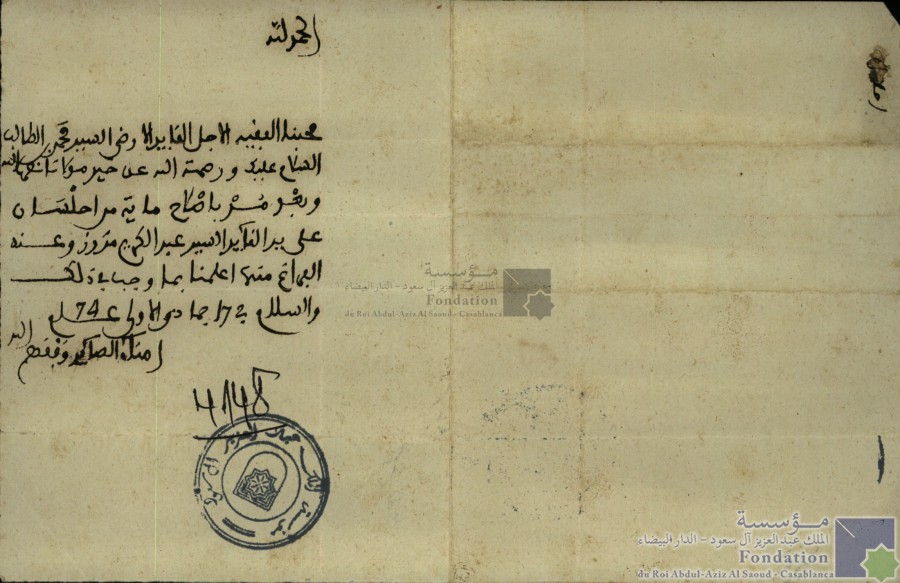 الحمد لله
محبنا الفقيه الاجل القايد الارضى السيد محمد الطالب
السلام عليك ورحمة الله عن خير مولانا نصره الله
وبعد مر باصلاح ماية من احلسان
على يد القايد السيد عبد الكريم
الفراغ منها اعلمنا بما وجب في ذلك
والسلام في 17 جمادى الاولى عام 74
امناء الصاير وفقهم الله
4148
مؤسسة
الملك عبد العزيز آل سعود - الدار البيضاء
Fondation
du Roi Abdul-Aziz Al Saoud - Casablanca
مؤسسة
الملك عبد العزيز آل سعود - الدار البيضاء
Fondation
du Roi Abdul-Aziz Al Saoud - Casablanca